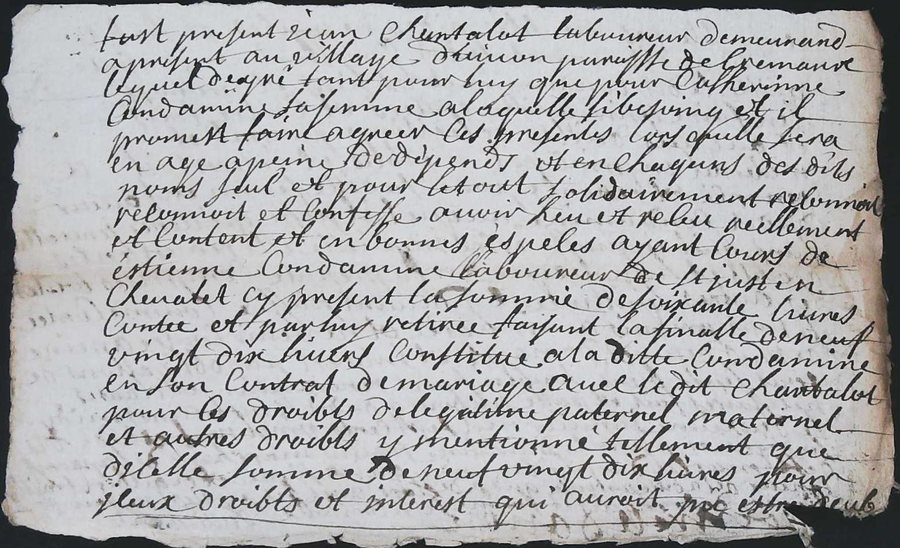 fust present Jean Chantalot laboureur demeurand
apresent au village paroisse de Cremaux
lequel degré tant pour luy que pour Catherinne
Condamine sa femme alaquelle sibesoing et il
promest faire agreer ces presentes lors quelle sera
en age apeine de dépends et en chaquns des dits
noms seul et pour letout solidairement reconnoit
reconnoit et confesse auoir heu et receu reellement
et content et en bonnes éspeces ayant cours de
éstienne Condamine laboureur de st just en
cheualet cy present la somme desoixante liures
contee et par luy retiree faisant la finalle deneuf
vingt dix liuers constitue ala ditte Condamine
en son contrat demariage auec le dit Chantalot
pour ces droibts delegitime paternel maternel
et autres droibts y mentionné tellement que
dicelle somme deneuf vingt dix liures pour
droibts et interest qui auroit pu estre deub